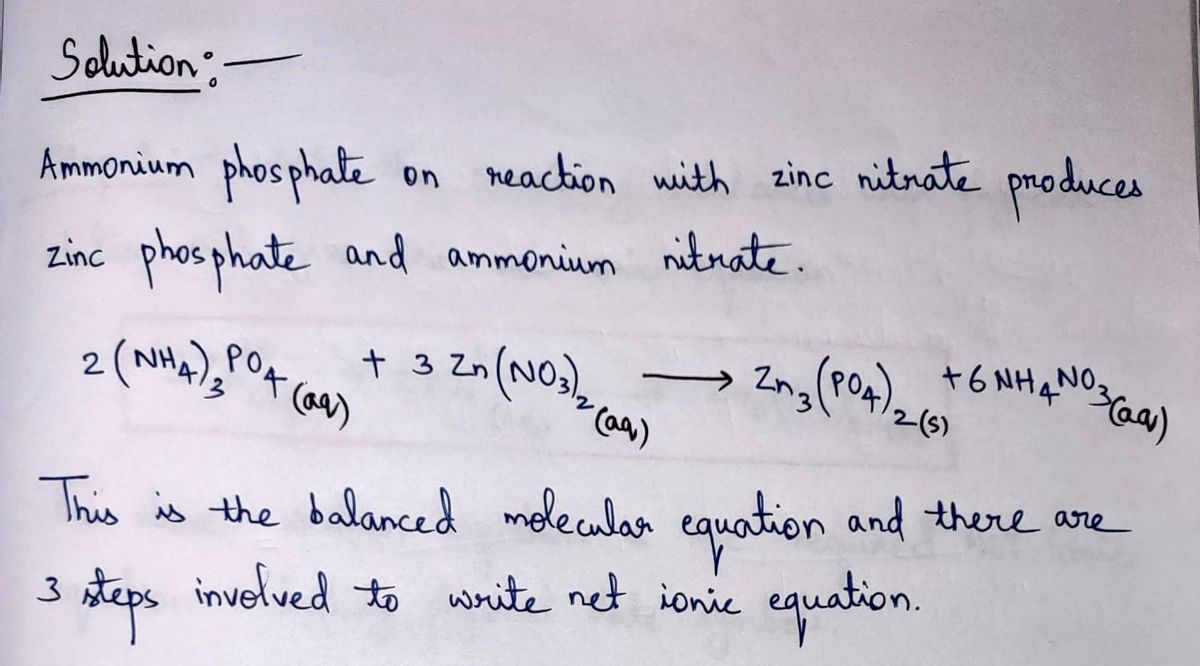 Solution:—
Ammonium phosphate on reaction with zinc nitrate produces
zinc phosphate and ammonium nitrate.
2(NH₄)₃PO₄(aq) + 3Zn(NO₃)₂(aq) ⟶ Zn₃(PO₄)₂(s) + 6NH₄NO₃(aq)
This is the balanced molecular equation and there are
3 steps involved to write net ionic equation.